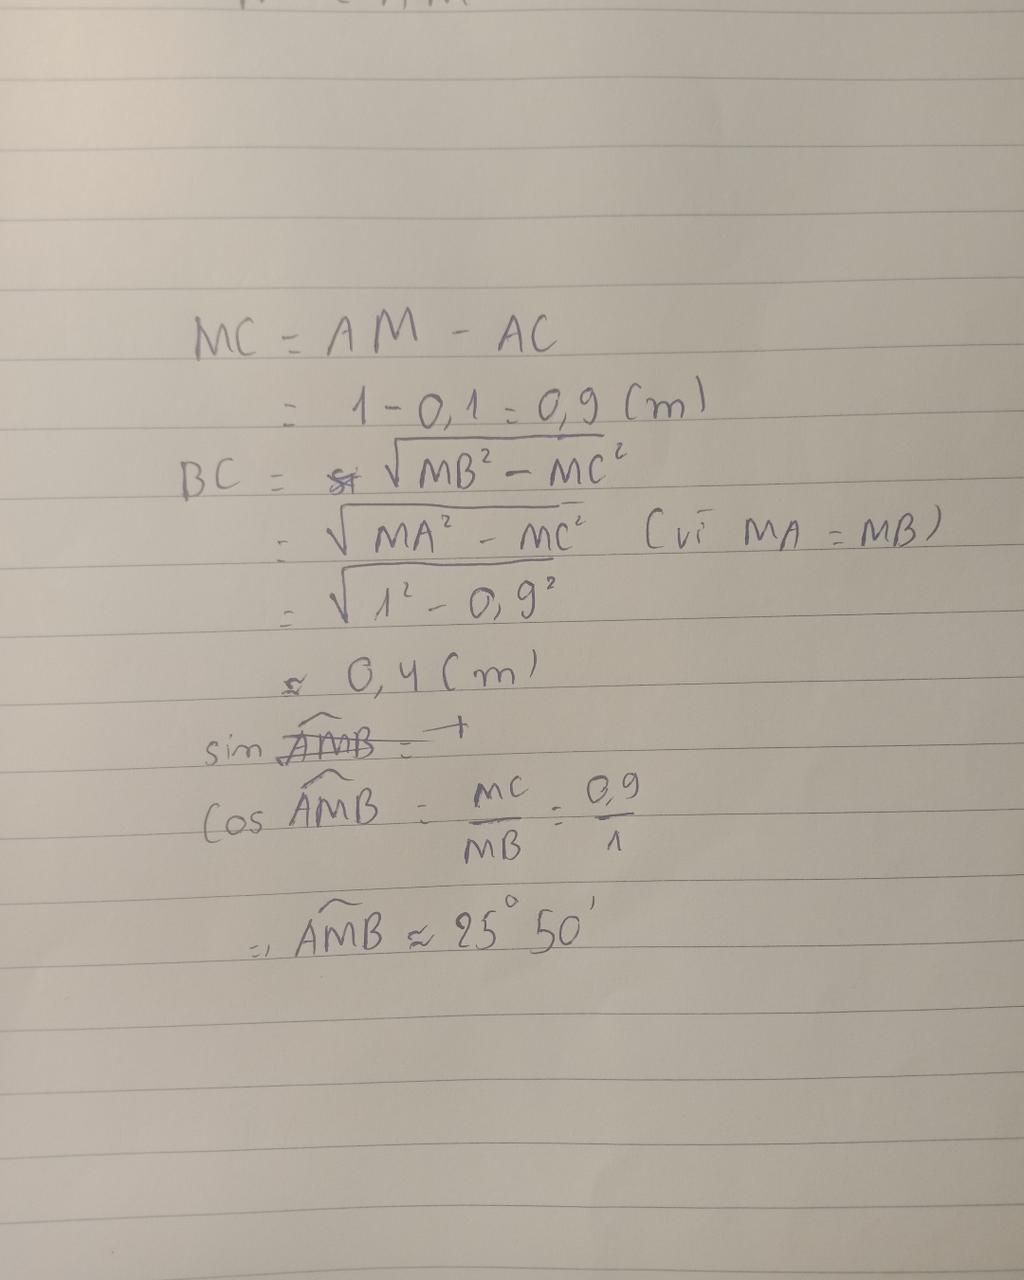 MC = AM - AC
= 1 - 0,1 = 0,9 (m)
BC = √MB² - MC²
= √MA² - MC² (vì MA = MB)
= √1² - 0,9²
≈ 0,4 (m)
sin AMB =
cos AMB = MC/MB = 0,9/1
=> AMB ≈ 25° 50'